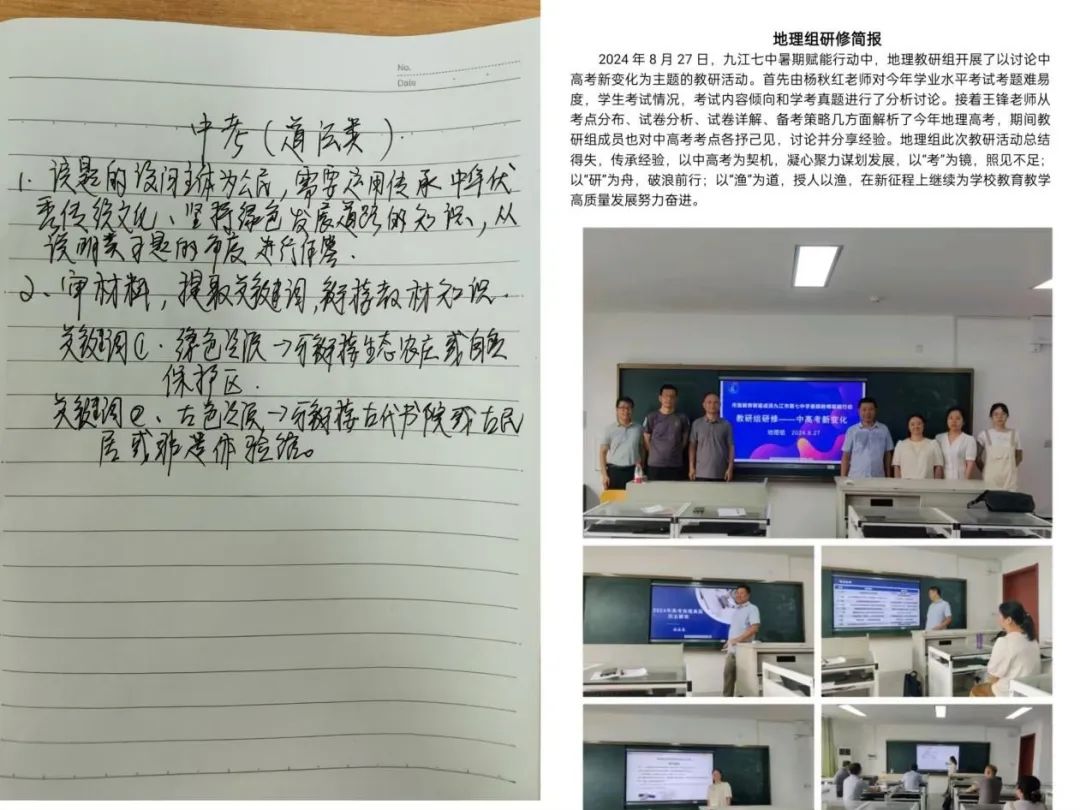 No.
Date
中考（道法类）.
1. 该题的设问主体为公民，需要运用传承中华优
秀传统文化、坚持绿色发展道路的知识，从
说明类主题的角度进行作答.
2、审材料，提取关键词，链接教材知识.
关键词①. 绿色资源→可链接生态农庄或自然
保护区.
关键词②、古色资源→可链接古代书院或古民
居或非遗体验馆。
地理组研修简报
2024年8月27日，九江七中暑期赋能行动中，地理教研组开展了以讨论中
高考新变化为主题的教研活动。首先由杨秋红老师对今年学业水平考试考题难易
度，学生考试情况，考试内容倾向和学考真题进行了分析讨论。接着王锋老师从
考点分布、试卷分析、试卷详解、备考策略几方面解析了今年地理高考，期间教
研组成员也对中高考考点各抒己见，讨论并分享经验。地理组此次教研活动总结
得失，传承经验，以中高考为契机，凝心聚力谋划发展，以“考”为镜，照见不足；
以“研”为舟，破浪前行；以“渔”为道，授人以渔，在新征程上继续为学校教育教学
高质量发展努力奋进。
教研组研修——中高考新变化
地理组 2024.8.27